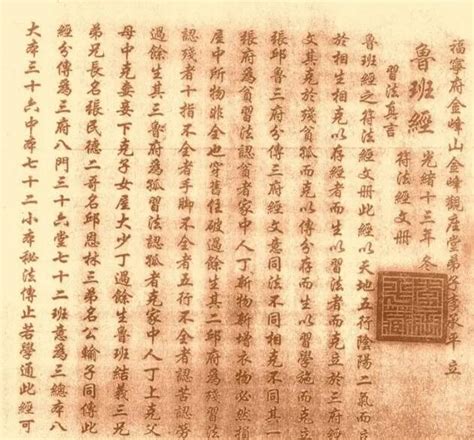 福寧府金峰山金峰觀座堂弟子李承平立
魯班經
光緒十三年冬
符法經文冊
習法真言
魯班經之符法經文冊此經以天地五行陰陽二氣而
於相生相克以存經者而生以習法者而克立於三府經
文其克於殘貧孤而克以傳分存而生以習學施而克立
張邱魯三府分傳三府經文意同法不同同相不同其一
張府為貧習法認貧者家中人丁新物新增衣物必然損
屋中所物非全也穿舊住破過餘生其二邱府為殘習法
認殘者十指不全者手腳不全者五行不全者認苦認勞
過餘生其三魯府為孤習法認孤者克家中人丁上克父
母中克妻妾下克子女屋大少丁過餘生魯班結義三兄
弟兄長名張民德二哥名邱恩林三弟名公輸子同傳此
經分傳為三府八門三十六堂七十二班意為三總本八
大本三十六中本七十二小本秘法傳止若學通此經可